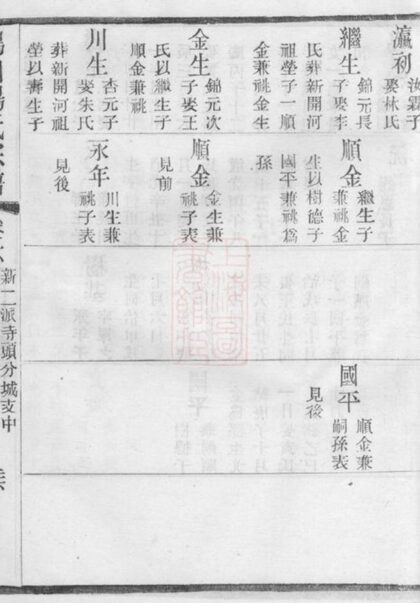 瀛初
汝錫子
娶林氏
繼生
錦元長
子娶李
氏葬新開河
祖塋子一順
金兼祧
順金
繼生子
兼祧金
生以樹德子
國平兼祧爲
孫
國平
順金兼
嗣孫表
見後
金生
錦元次
子娶王
氏以繼生子
順金兼祧
順金
金生兼
祧子表
見前
川生
杏元子
娶朱氏
葬新開河祖
塋以壽生子
永年
川生兼
祧子表
見後
新二派寺頭分城支中